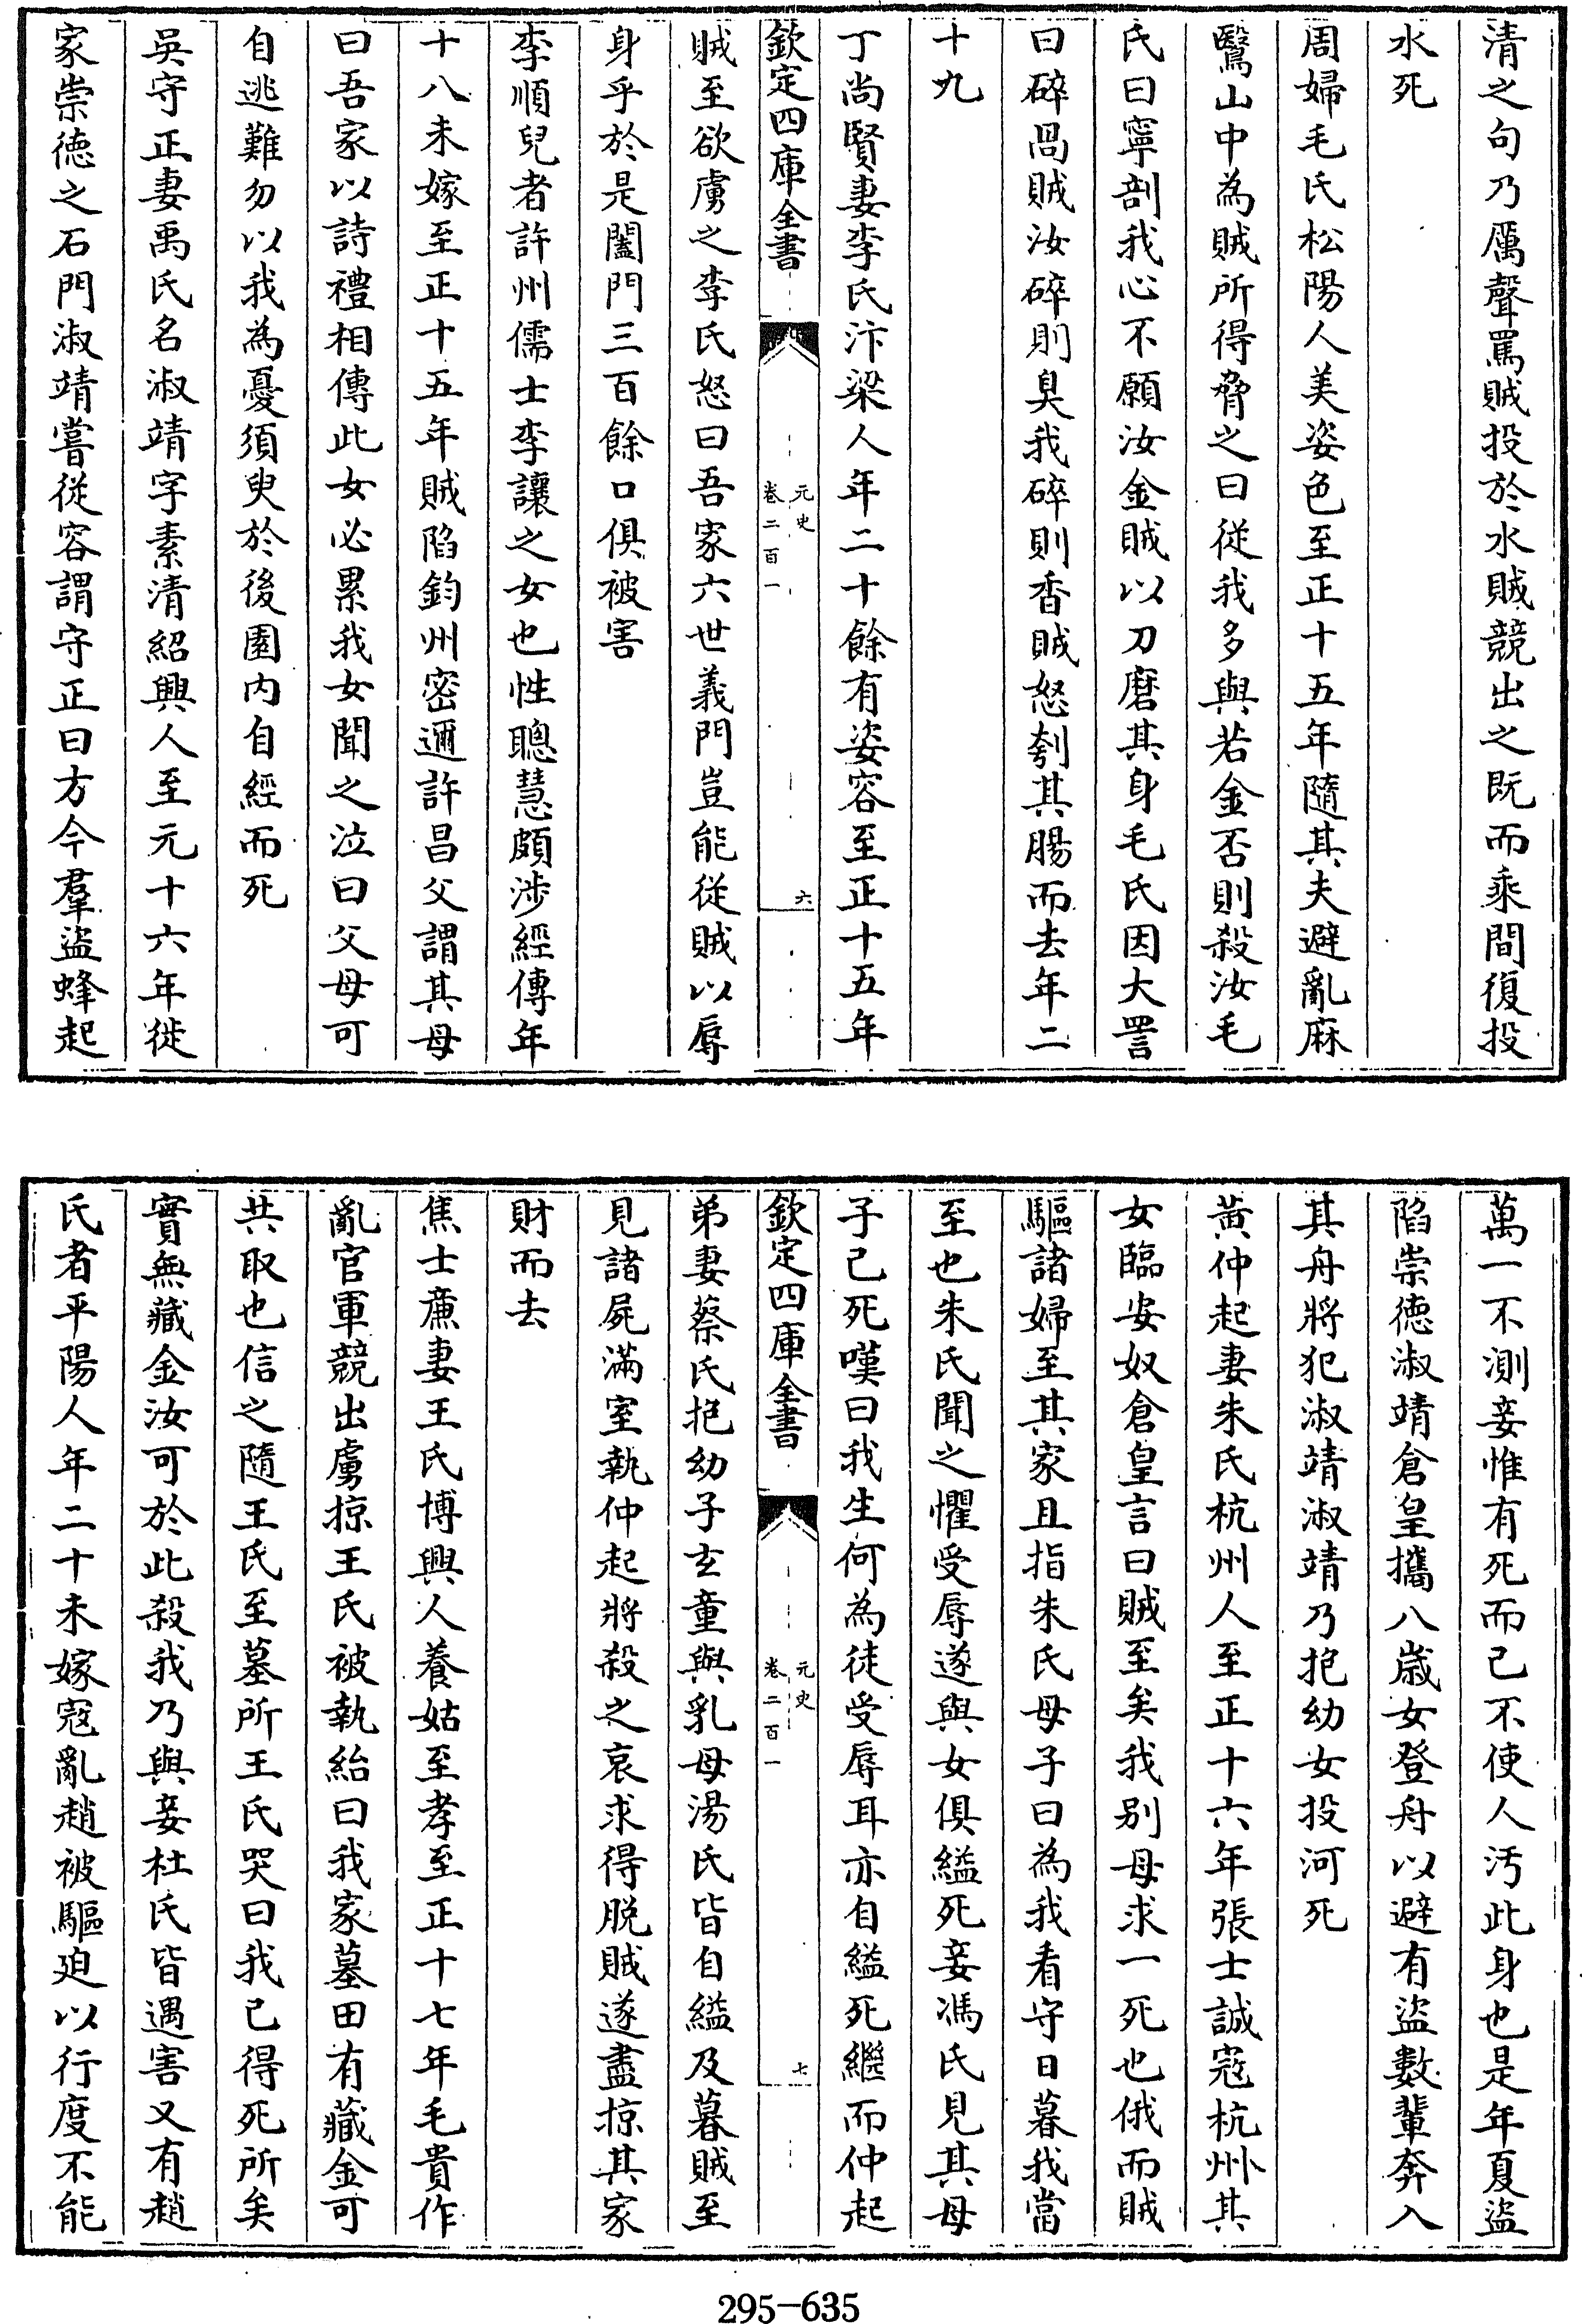 清之句乃厲聲罵賊投於水賊競出之既而乘間復投
水死
周婦毛氏松陽人美姿色至正十五年隨其夫避亂麻
鷖山中為賊所得脅之曰從我多與若金否則殺汝毛
氏曰寧剖我心不願汝金賊以刀磨其身毛氏因大詈
曰碎咼賊汝碎則臭我碎則香賊怒刳其腸而去年二
十九
丁尚賢妻李氏汴梁人年二十餘有姿容至正十五年
欽定四庫全書
元史
卷二百一
六
賊至欲虜之李氏怒曰吾家六世義門豈能從賊以辱
身乎於是闔門三百餘口俱被害
李順兒者許州儒士李讓之女也性聰慧頗涉經傳年
十八未嫁至正十五年賊陷鈞州密邇許昌父謂其母
曰吾家以詩禮相傳此女必累我女聞之泣曰父母可
自逃難勿以我為憂須臾於後園内自經而死
吳守正妻禹氏名淑靖字素清紹興人至元十六年徙
家崇徳之石門淑靖嘗從容謂守正曰方今羣盜蜂起
萬一不測妾惟有死而已不使人汚此身也是年夏盜
陷崇徳淑靖倉皇攜八歳女登舟以避有盜數輩奔入
其舟將犯淑靖淑靖乃抱幼女投河死
黃仲起妻朱氏杭州人至正十六年張士誠寇杭州其
女臨安奴倉皇言曰賊至矣我别母求一死也俄而賊
驅諸婦至其家且指朱氏母子曰為我看守日暮我當
至也朱氏聞之懼受辱遂與女俱縊死妾馮氏見其母
子已死嘆曰我生何為徒受辱耳亦自縊死繼而仲起
欽定四庫全書
元史
卷二百一
七
弟妻蔡氏抱幼子玄童與乳母湯氏皆自縊及暮賊至
見諸屍滿室執仲起將殺之哀求得脱賊遂盡掠其家
財而去
焦士亷妻王氏博興人養姑至孝至正十七年毛貴作
亂官軍競出虜掠王氏被執紿曰我家墓田有藏金可
共取也信之隨王氏至墓所王氏哭曰我已得死所矣
實無藏金汝可於此殺我乃與妾杜氏皆遇害又有趙
氏者平陽人年二十未嫁寇亂趙被驅迫以行度不能
295-635